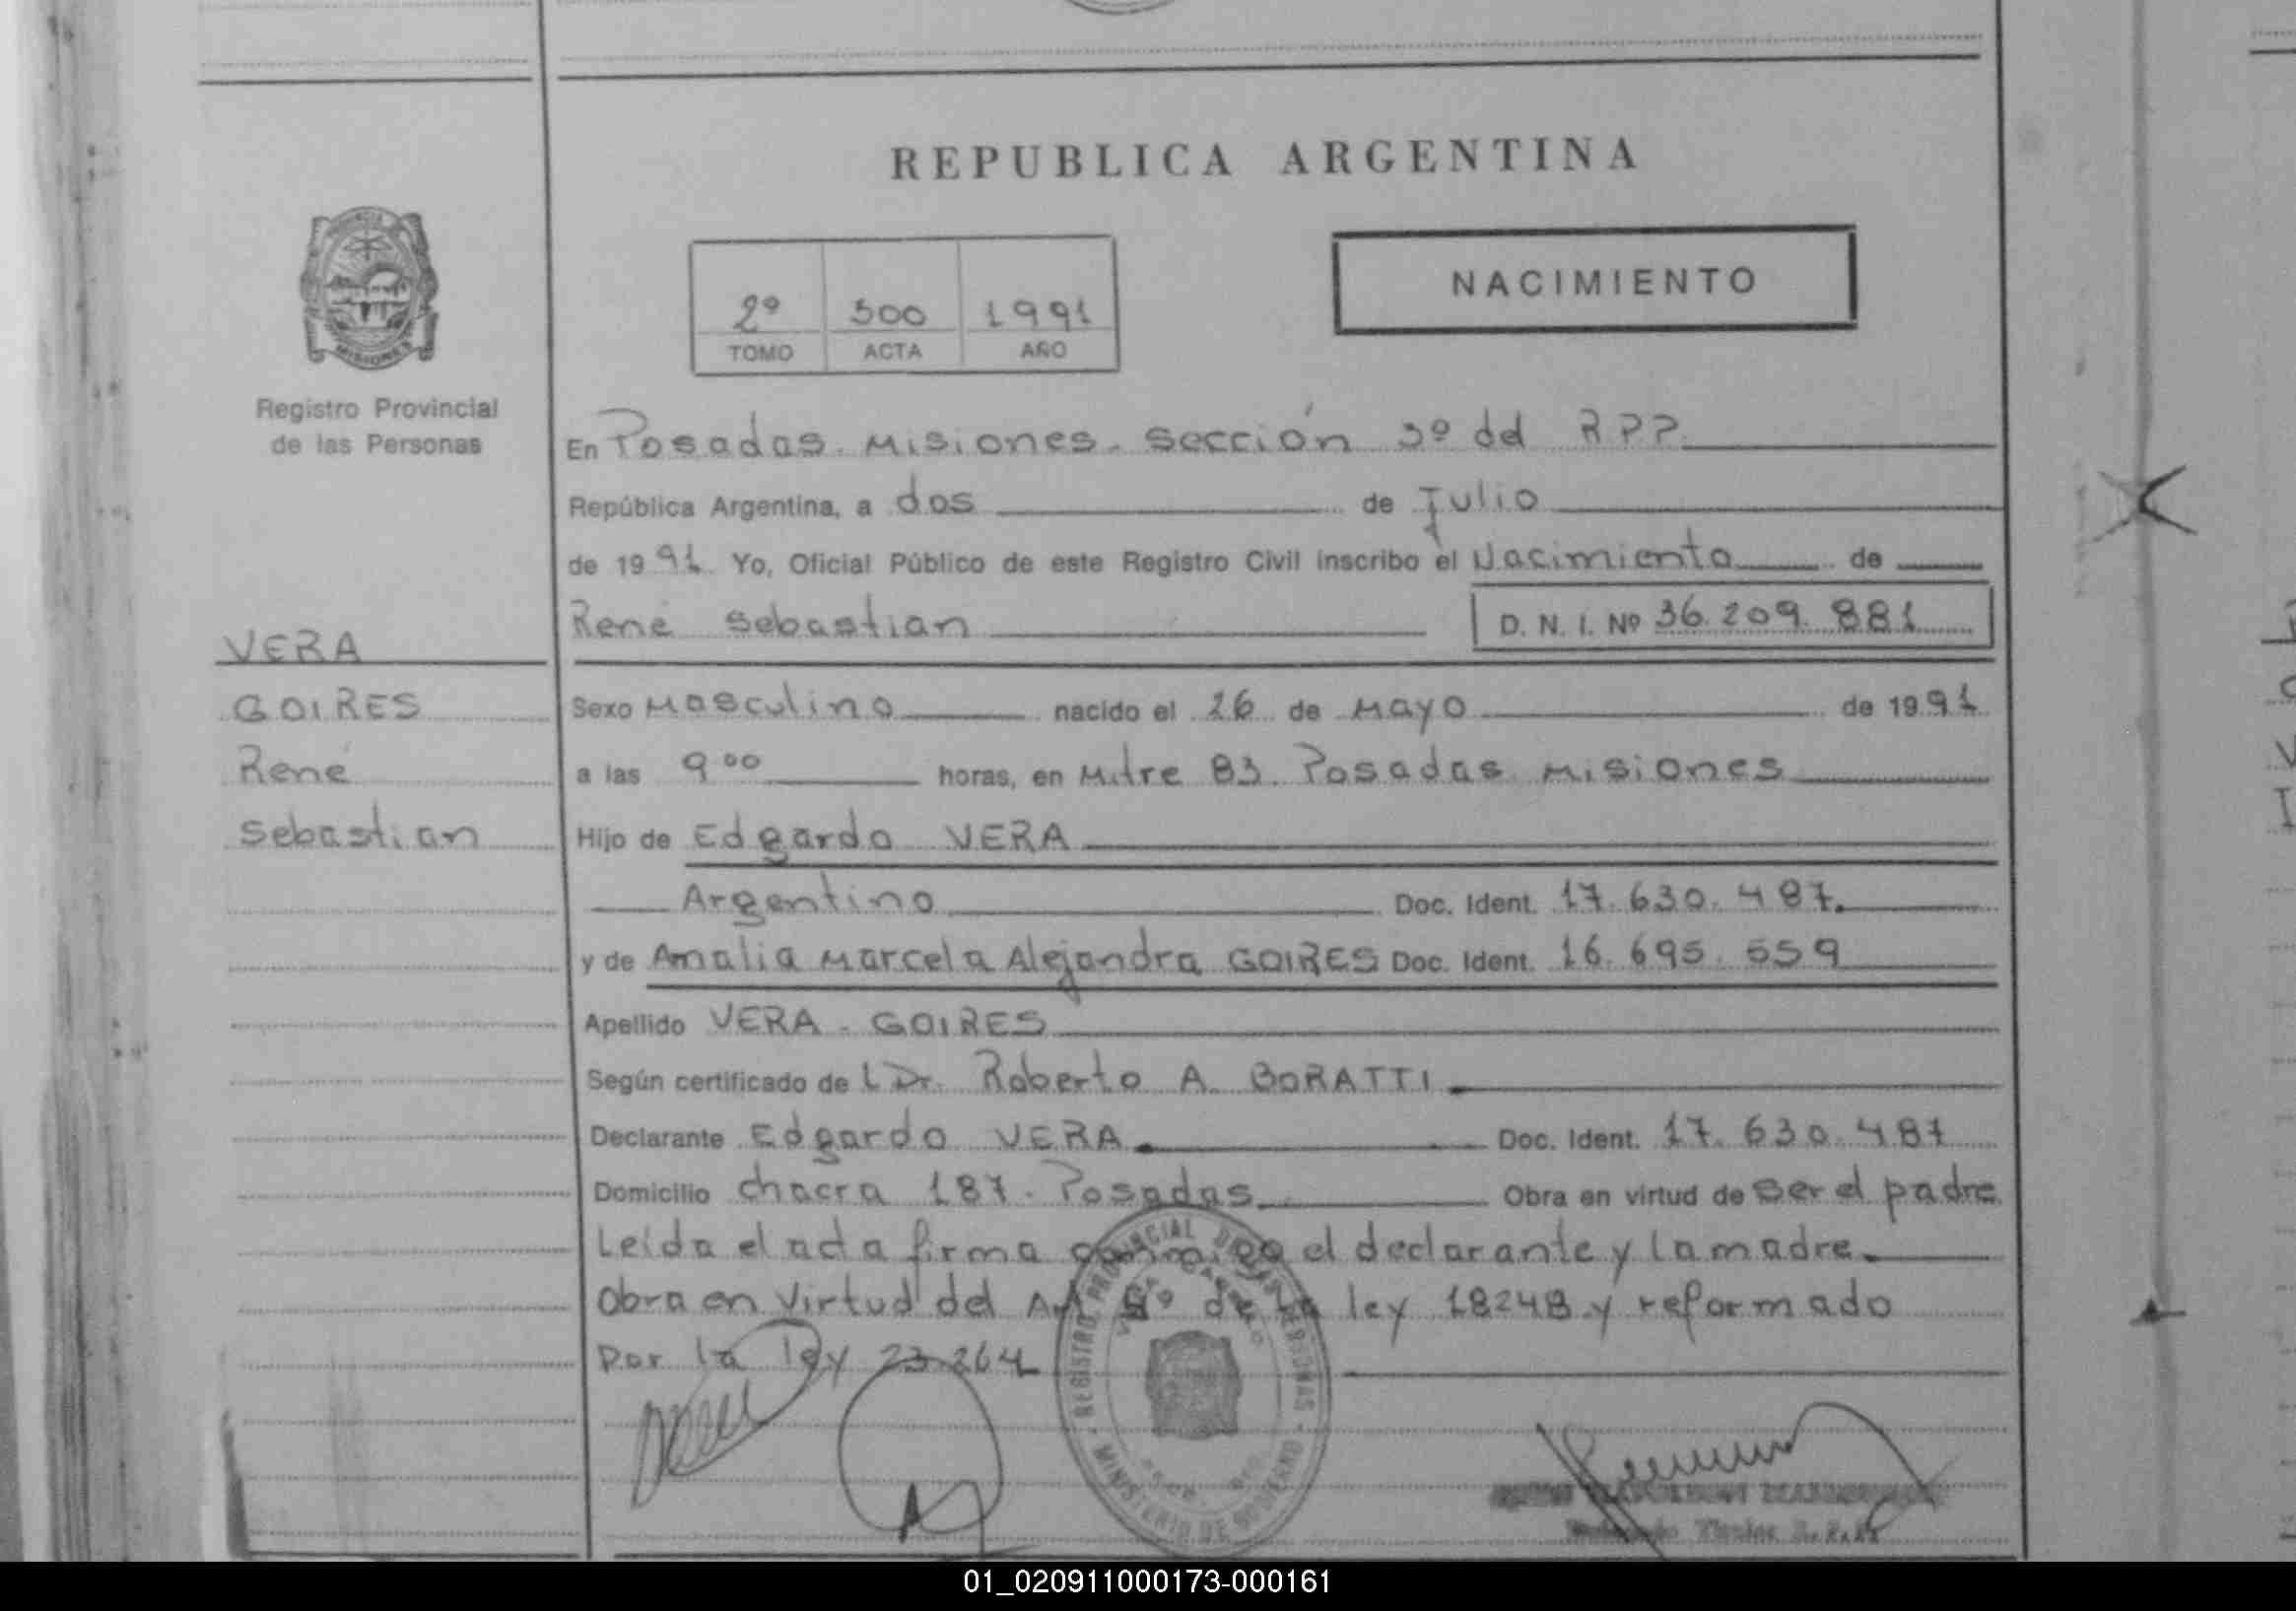 REPUBLICA ARGENTINA
NACIMIENTO
2º 300 1991
TOMO ACTA AÑO
MISIONES
Registro Provincial
de las Personas
En Posadas. Misiones. Sección 3º del RPP
República Argentina, a dos de Julio
de 1991 Yo, Oficial Público de este Registro Civil inscribo el Nacimiento de
René Sebastian D. N. I. Nº 36.209.881
VERA
GOIRES
René
Sebastian
Sexo Masculino nacido el 26 de Mayo de 1991
a las 9 00 horas, en Mitre 83. Posadas Misiones
Hijo de Edgardo VERA
Argentino Doc. Ident. 17.630.487.
y de Amalia Marcela Alejandra GOIRES Doc. Ident. 16.695.559
Apellido VERA - GOIRES
Según certificado de l Dr. Roberto A. BORATTI
Declarante Edgardo VERA Doc. Ident. 17.630.487
Domicilio Chacra 187. Posadas Obra en virtud de ser el padre
Leída el acta firma conmigo el declarante y la madre.
Obra en Virtud del Art 5º de la ley 18248 y reformado
Por la ley 23.264
REGISTRO PROVINCIAL DE LAS PERSONAS
MINISTERIO DE GOBIERNO
01_020911000173-000161